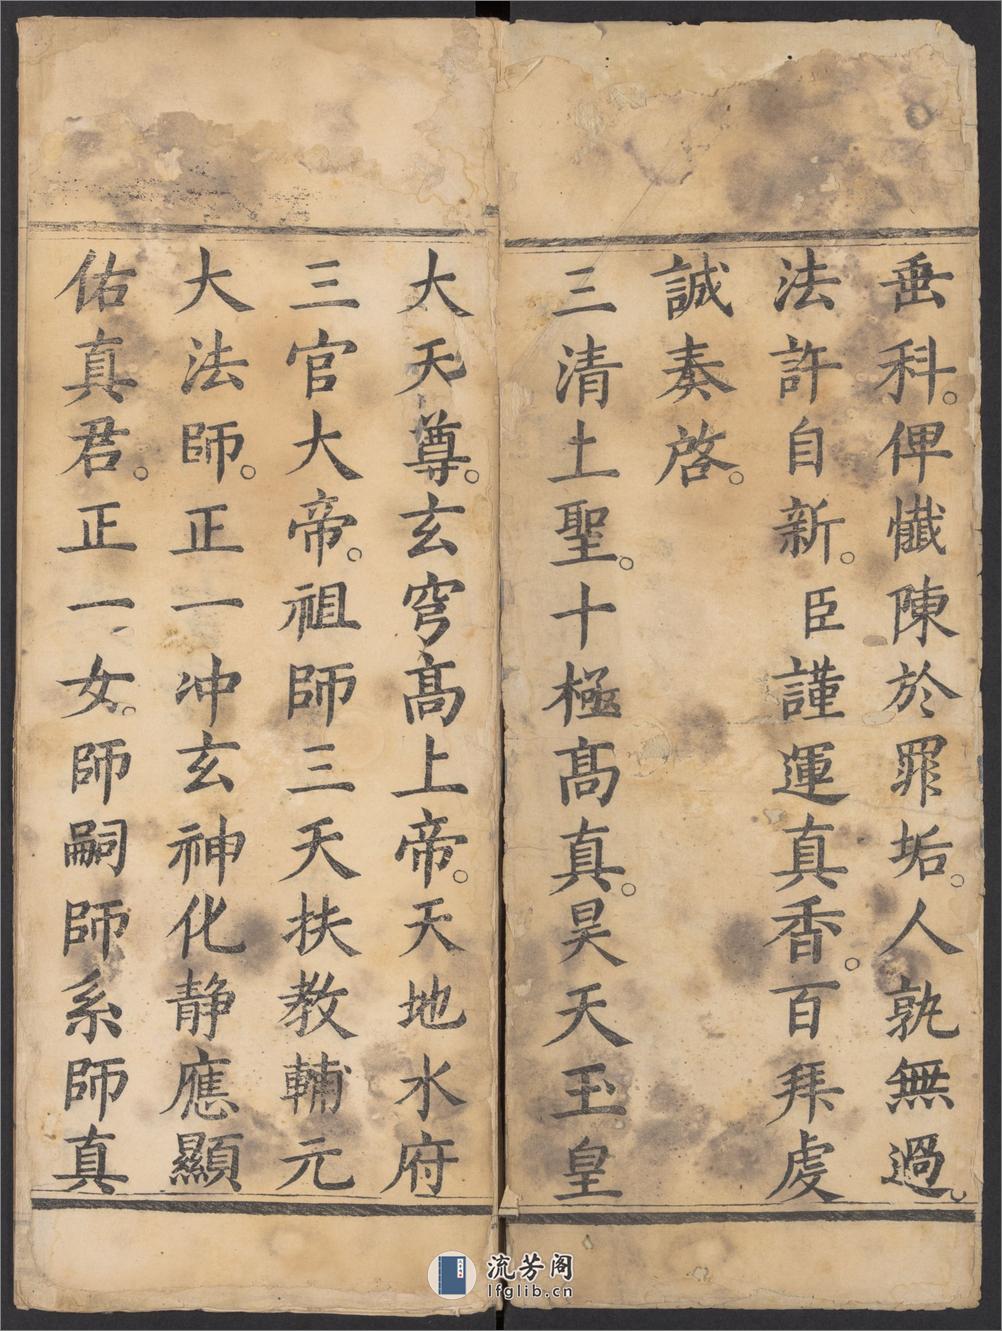 垂科。俾懺陳於罪垢。人孰無過。
法許自新。臣謹運真香。百拜虔
誠奏啓。
三清上聖。十極髙真。昊天玉皇
大天尊。玄穹髙上帝。天地水府
三官大帝。祖師三天扶教輔元
大法師。正一冲玄神化静應顯
佑真君。正一女。師嗣師系師真
流芳阁
lfglib.cn